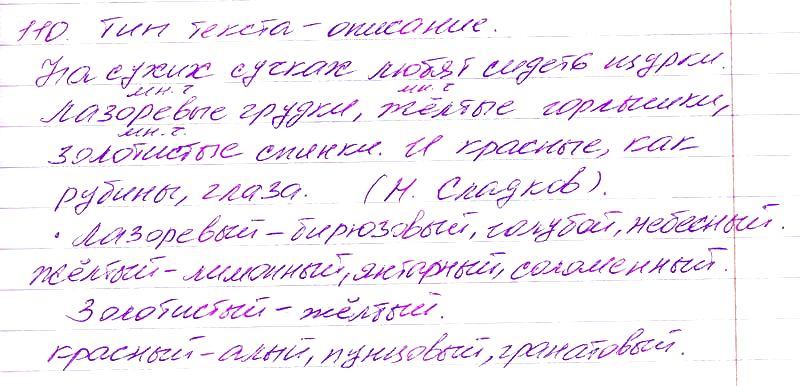 110. Тип текста - описание.
На сухих сучках любят сидеть щурки.
мн. ч мн. ч
Лазоревые грудки, жёлтые горлышки,
мн. ч.
золотистые спинки. И красные, как
рубины, глаза. (Н. Сладков).
· Лазоревый - бирюзовый, голубой, небесный.
Жёлтый - лимонный, янтарный, соломенный.
Золотистый - жёлтый.
Красный - алый, пунцовый, гранатовый.